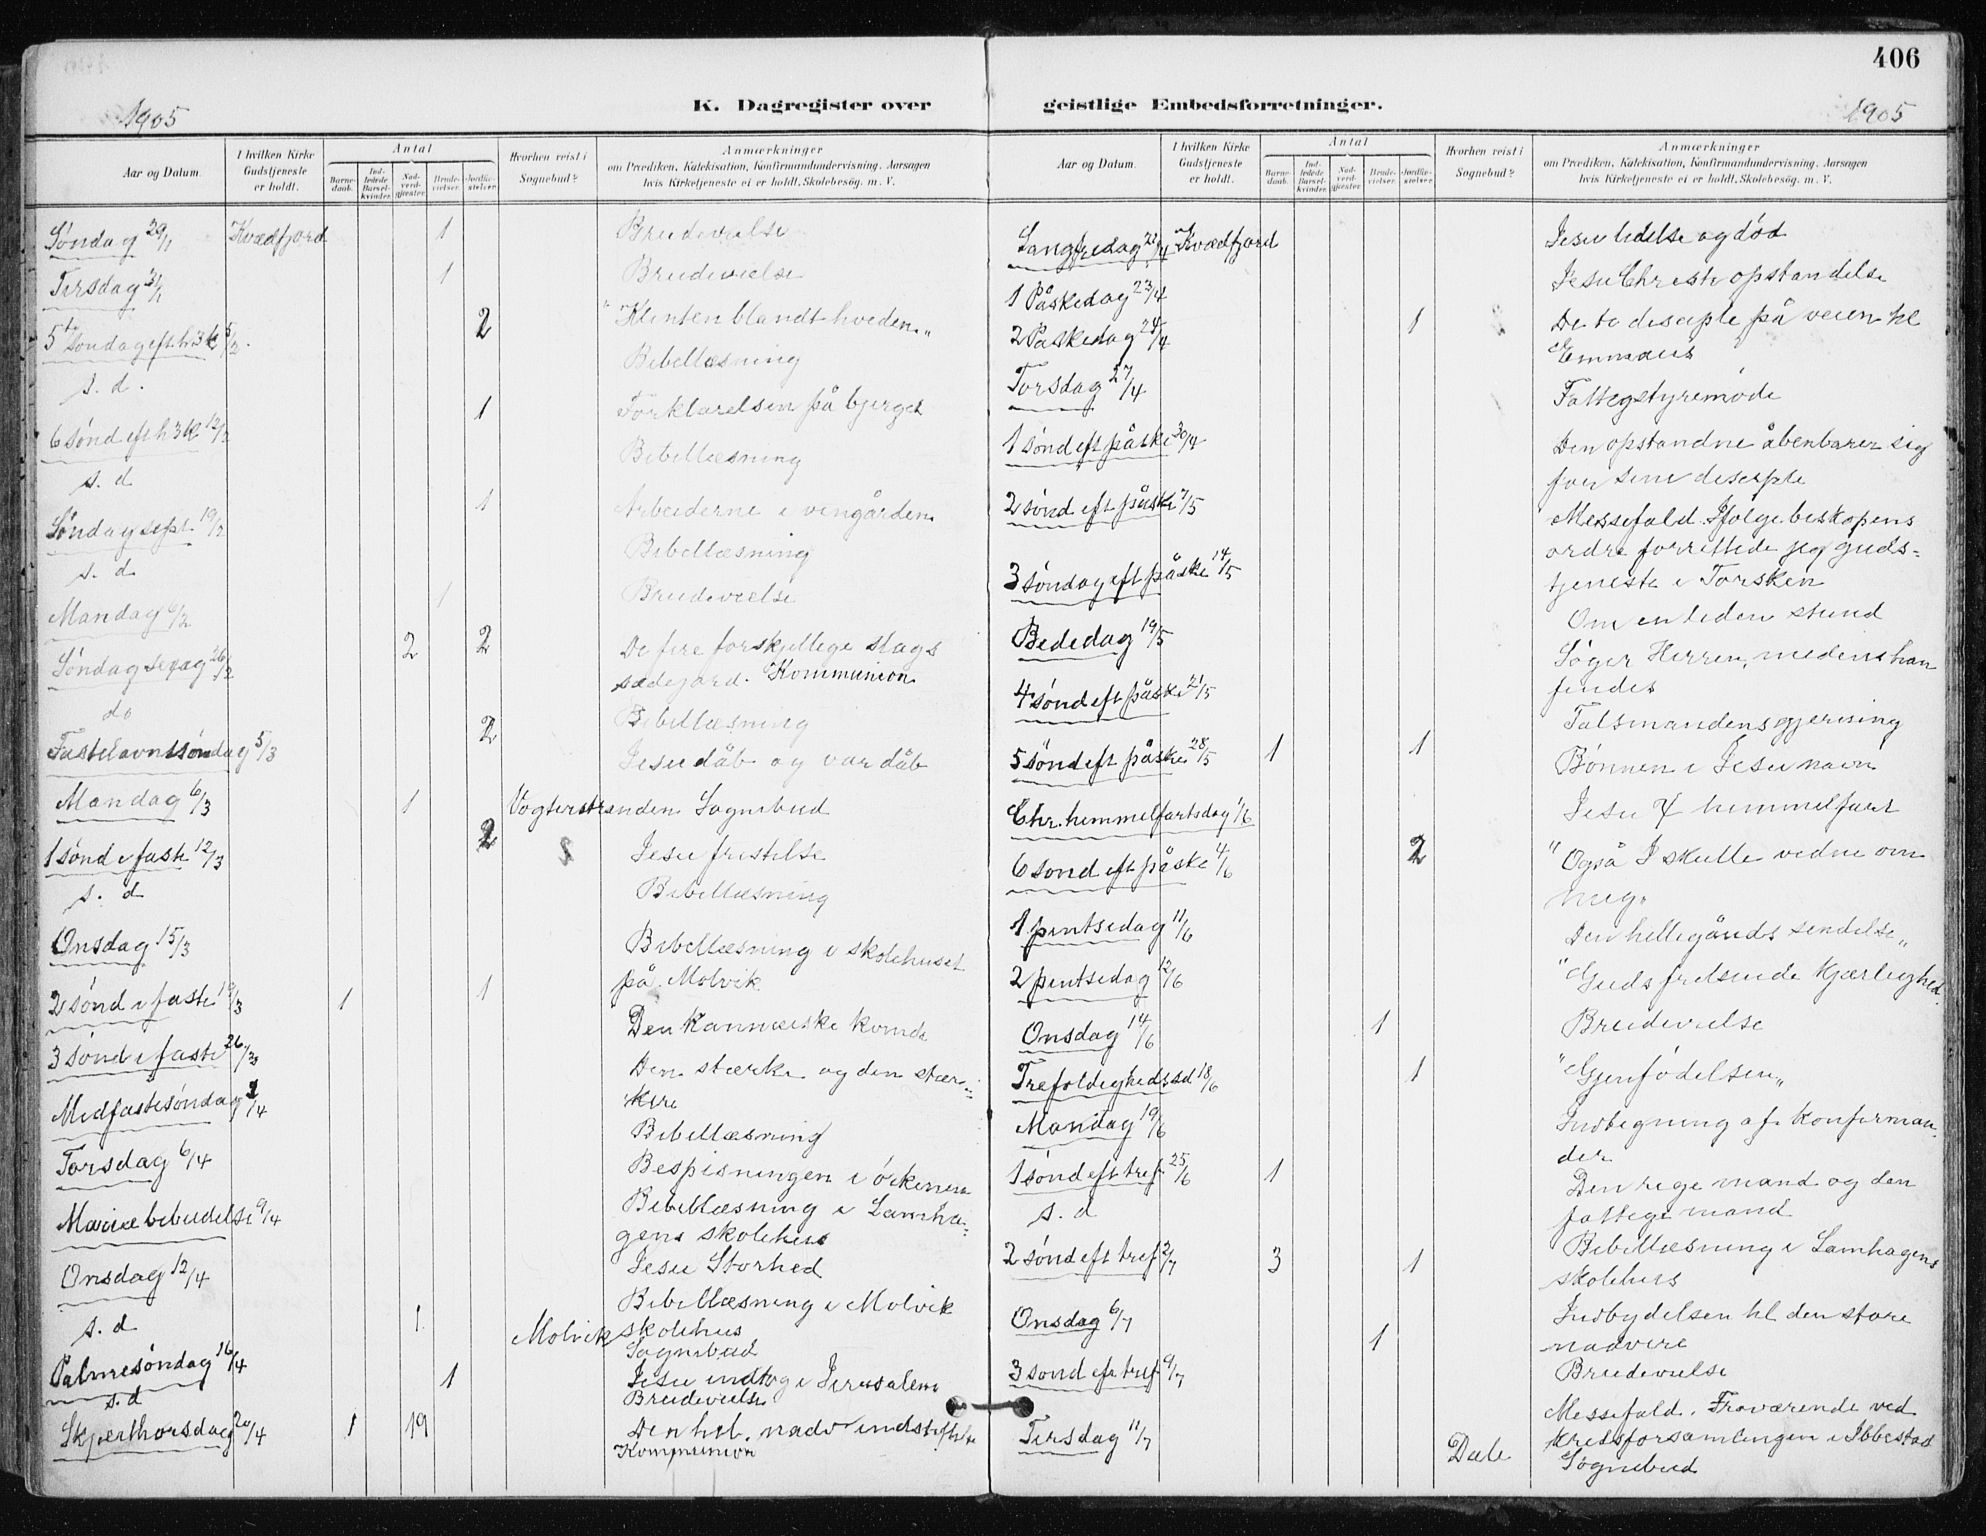 406
1905
K. Dagregister over
Aar og Datum.
I hvilken Kirke Gudstjeneste er holdt.
Antal
Barnedaab.
Indledede Barselkvinder.
Nadverdgjester.
Brudevielser.
Jordfæstelser.
Hvorhen reist i Sognebud?
Anmærkninger
om Prædiken, Katekisation, Konfirmandundervisning, Aarsagen
hvis Kirketjeneste ei er holdt, Skolebesøg. m. V.
Søndag 29/1 Kvædfjord 1 Brudevielse
Tirsdag 31/1 1 Brudevielse
5te Søndag eft h3k 5/2 2 "Klinten blandt hveden"
s. d. Bibellæsning
6 sønd eft h3k 12/2 1 Forklarelsen på bjerget
s. d Bibellæsning
Søndag sept. 19/2 1 Arbeiderne i vingården
s. d Bibellæsning
Mandag 1 Brudevielse
Søndag sexag 26/2 2 2 De fire forskjellige slags
sædejord. Kommunion
do Bibellæsning
Fastelavnssøndag 5/3 2 Jesu dåb og vor dåb
Mandag 6/3 1 Vogterstranden Sognebud
1 sønd i faste 12/3 2 Jesu fristelse
s. d Bibellæsning
Onsdag 15/3 Bibellæsning i skolehuset
på Molvik
2 sønd i faste 19/3 1 1 Den kananæiske kvinde
3 sønd i faste 26/3 Den stærke og den stær=
kere
Bibellæsning
Midfastesøndag 2/4 Bespisningen i ørkenen
Torsdag 6/4 Bibellæsning i Lamha=
gens skolehus
Mariæ bebudelse 9/4 Jesu Storhed
Onsdag 12/4 Bibellæsning i Molvik
skolehus
s. d 1 Molvik Sognebud
Palmesøndag 16/4 Jesu indtog i Jerusalem
s. d 1 Brudevielse
Skjærthorsdag 20/4 1 19 Den hel. nadv indstiftelse
Kommunion
1905
geistlige Embedsforretninger.
Aar og Datum.
I hvilken Kirke Gudstjeneste er holdt.
Antal
Barnedaab.
Indledede Barselkvinder.
Nadverdgjester.
Brudevielser.
Jordfæstelser.
Hvorhen reist i Sognebud?
Anmærkninger
om Prædiken, Katekisation, Konfirmandundervisning, Aarsagen
hvis Kirketjeneste ei er holdt, Skolebesøg. m. V.
Langfredag 21/4 Kvædfjord Jesu lidelse og død
1 Påskedag 23/4 Jesu Christi opstandelse
2 Påskedag 24/4 1 De to disciple på veien til
Emmaus
Torsdag 27/4 Fattigstyremøde
1 sønd eft påske 30/4 Den opstandne åbenbarer sig
for sine disciple
2 sønd eft påske 7/5 Messefald. Ifølge biskopens
ordre forrettede jeg guds=
tjeneste i Torsken
3 søndag eft påske 14/5 Om en liden stund
Bededag 19/5 Søger Herren, medens han
findes
4 sønd eft påske 21/5 Talsmandens gjerning
5 sønd eft påske 28/5 1 1 Bønnen i Jesu navn
Chr. himmelfartsdag 1/6 Jesu himmelfart
6 sønd eft påske 4/6 2 "Også I skulle vidne om
mig"
1 pintsedag 11/6 Den helligånds sendelse"
2 pintsedag 12/6 "Guds frelsende kjærlighed
Onsdag 14/6 1 Brudevielse
Trefoldighedssd 18/6 1 "Gjenfødelsen"
Mandag 19/6 Indtegning af konfirman=
der
1 sønd eft tref. 25/6 1 Den rige mand og den
fattige mand
s. d Bibellæsning i Lamhagens
skolehus
2 sønd eft tref 2/7 3 1 Indbydelsen til den store
nadvere
Onsdag 6/7 1 Brudevielse
3 sønd eft tref 9/7 Messefald. Fraværende ved
kredsforsamlingen i Ibbestad
Tirsdag 11/7 Dale Sognebud